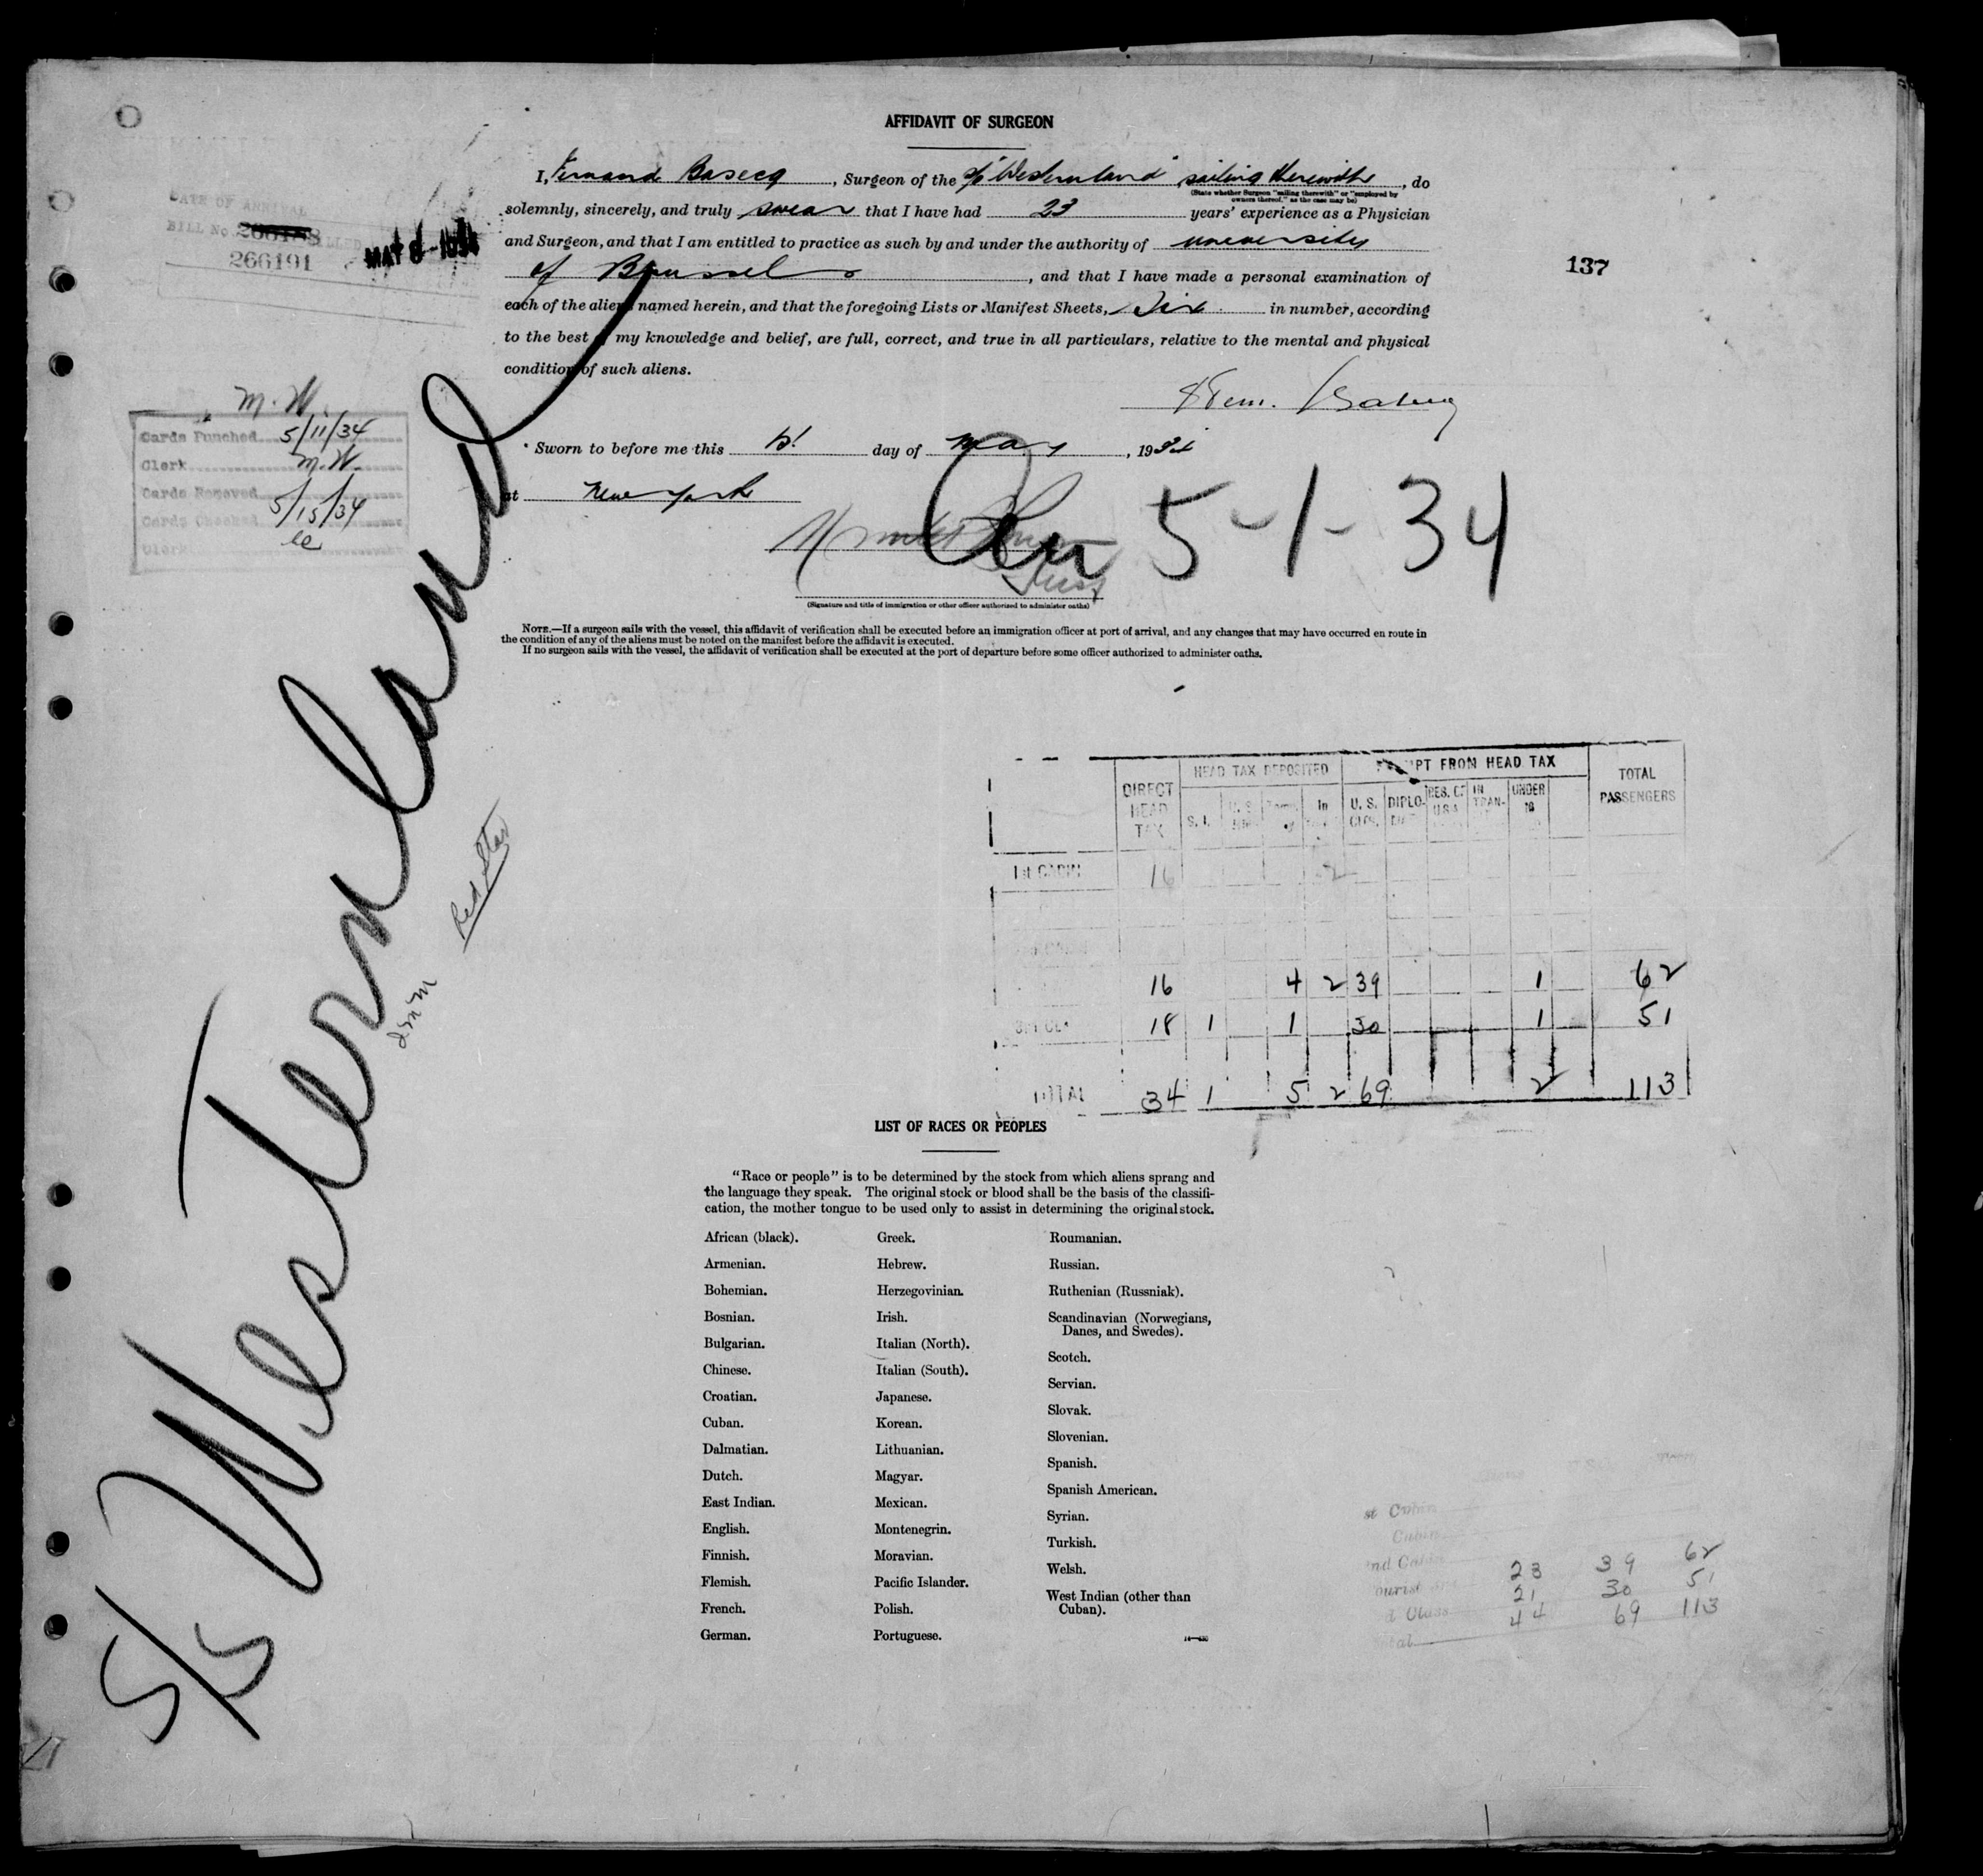 AFFIDAVIT OF SURGEON
I, Fernand Basecq, Surgeon of the S/S "Westernland" sailing therewith, do
(State whether Surgeon "sailing therewith" or "employed by
owners thereof," as the case may be)
solemnly, sincerely, and truly swear that I have had 23 years' experience as a Physician
and Surgeon, and that I am entitled to practice as such by and under the authority of university
of Brussels, and that I have made a personal examination of
each of the aliens named herein, and that the foregoing Lists or Manifest Sheets, Six in number, according
to the best of my knowledge and belief, are full, correct, and true in all particulars, relative to the mental and physical
condition of such aliens.
DATE OF ARRIVAL
BILL No. 266188
266191
MAY 8-1934
137
M.W.
Cards Punched 5/11/34
Clerk M.W.
Cards Removed 5/15/34
Cards Checked
Clerk
Sworn to before me this 1st day of May, 1934
at New York
Arr 5-1-34
Inst
(Signature and title of immigration or other officer authorized to administer oaths)
NOTE.—If a surgeon sails with the vessel, this affidavit of verification shall be executed before an immigration officer at port of arrival, and any changes that may have occurred en route in
the condition of any of the aliens must be noted on the manifest before the affidavit is executed.
If no surgeon sails with the vessel, the affidavit of verification shall be executed at the port of departure before some officer authorized to administer oaths.
S/S Westernland
Red Star
DIRECT HEAD TAX
HEAD TAX DEPOSITED
EXEMPT FROM HEAD TAX
TOTAL PASSENGERS
S. I. In U. S. CLPS. DIPLO- RES. OF U.S.A. IN TRAN- UNDER 16
1st CABIN 16 2
16 4 2 39 1 62
18 1 1 30 1 51
TOTAL 34 1 5 2 69 2 113
LIST OF RACES OR PEOPLES
"Race or people" is to be determined by the stock from which aliens sprang and
the language they speak. The original stock or blood shall be the basis of the classifi-
cation, the mother tongue to be used only to assist in determining the original stock.
African (black).
Armenian.
Bohemian.
Bosnian.
Bulgarian.
Chinese.
Croatian.
Cuban.
Dalmatian.
Dutch.
East Indian.
English.
Finnish.
Flemish.
French.
German.
Greek.
Hebrew.
Herzegovinian.
Irish.
Italian (North).
Italian (South).
Japanese.
Korean.
Lithuanian.
Magyar.
Mexican.
Montenegrin.
Moravian.
Pacific Islander.
Polish.
Portuguese.
Roumanian.
Russian.
Ruthenian (Russniak).
Scandinavian (Norwegians,
Danes, and Swedes).
Scotch.
Servian.
Slovak.
Slovenian.
Spanish.
Spanish American.
Syrian.
Turkish.
Welsh.
West Indian (other than
Cuban).
st Cabin
Cabin
nd Cabin
ourist 23 39 62
d Class 21 30 51
otal 44 69 113